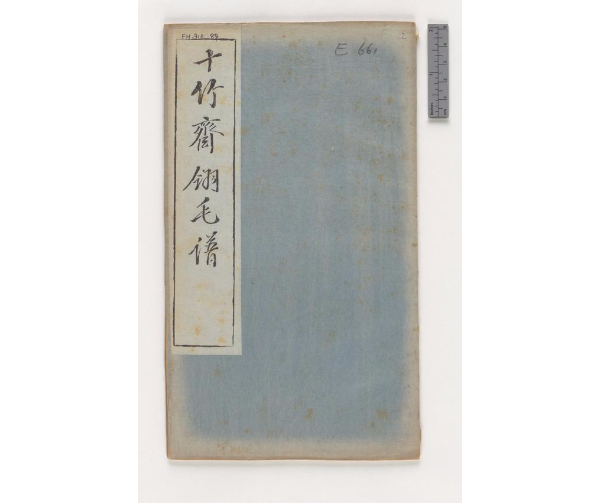 十竹齋翎毛譜
E 661
2